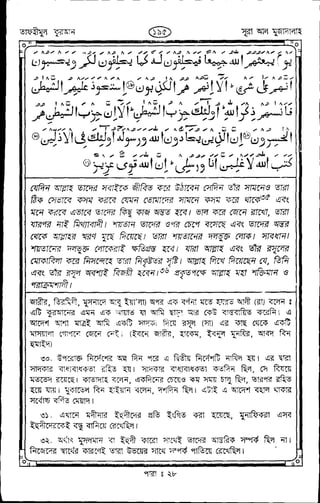 তাফহীমুল কুরআন
১৯৫
সূরা আল মুজাদালাহ
يوم يبعثهم الله جميعا فيحلفون له كما يحلفون لكم ويحسبون
انهم على شيء الا انهم هم الكذبون استحوذ عليهم الشيطن
فانسهم ذكر الله اولئك حزب الشيطن الا ان حزب الشيطن هم
الخسرون ان الذين يحادون الله ورسوله اولئك في الاذلين
كتب الله لاغلبن انا ورسلي ان الله قوي عزيز
যেদিন আল্লাহ তাদের সবাইকে জীবিত করে উঠাবেন সেদিন তাঁর সামনেও তারা
ঠিক সেভাবে কসম করবে যেমন তোমাদের সামনে কসম করে থাকে এবং
মনে করবে এভাবে তাদের কিছু কাজ অন্তত হবে। ভাল করে জেনে রাখো, তারা
যারপর নাই মিথ্যাবাদী। শয়তান তাদের ওপর চেপে বসেছে এবং তাদের অন্তর
থেকে আল্লাহর স্মরণ মুছে দিয়েছে। তারা শয়তানের দলভুক্ত লোক। সাবধান!
শয়তানের দলভুক্ত লোকেরাই ক্ষতিগ্রস্ত হবে। যারা আল্লাহ এবং তাঁর রসূলের
মোকাবিলা করে নিসন্দেহে তারা নিকৃষ্টতর সৃষ্টি। আল্লাহ লিখে দিয়েছেন যে, তিনি
এবং তাঁর রসূল অবশ্যই বিজয়ী হবেন। প্রকৃতপক্ষে আল্লাহ মহা শক্তিমান ও
পরাক্রমশালী।
জারীর, তিরমিযী, মুসনাদে আবু ইয়া'লা) অপর এক বর্ণনা মতে হযরত আলী (রা) বলেন :
এটি কুরআনের এমন এক আয়াত যা আমি ছাড়া আর কেউ বাস্তবায়িত করেনি। এ
আদেশ আসা মাত্রই আমি একটি সাদকা দিয়ে রসূল (সা) এর কাছ থেকে একটি
মাসয়ালা গোপনে জেনে নেই। (ইবনে জারীর, হাকেম, ইবনুল মুনযির, আবদ বিন
হুমাইদ)
৩০. উপরোক্ত নির্দেশের অল্প দিন পরে এ দ্বিতীয় নির্দেশটি নাযিল হয়। এর দ্বারা
সাদকার বাধ্যবাধকতা রহিত হয়। সাদকার বাধ্যবাধকতা কতদিন ছিল, সে বিষয়ে
মতভেদ রয়েছে। কাতাদাহ বলেন, একদিনের চেয়েও কম সময় চালু ছিল, তারপর রহিত
হয়ে যায়। মুকাতেল বিন হাইয়ান বলেন, দশদিন ছিল। এটাই এ আদেশ বহাল থাকার
সর্বোচ্চ বর্ণিত মেয়াদ।
৩১. এখানে মদীনার ইহুদীদের প্রতি ইংগিত করা হয়েছে, মুনাফিকরা এসব
ইহুদীদেরকেই বন্ধু বানিয়ে রেখেছিল।
৩২. অর্থাৎ মুসলমান বা ইহুদী কারো সাথেই তাদের আন্তরিক সম্পর্ক ছিল না।
নিজেদের স্বার্থের কারণেই তারা উভয়ের সাথে সম্পর্ক পাতিয়ে রেখেছিল।
পারা : ২৮